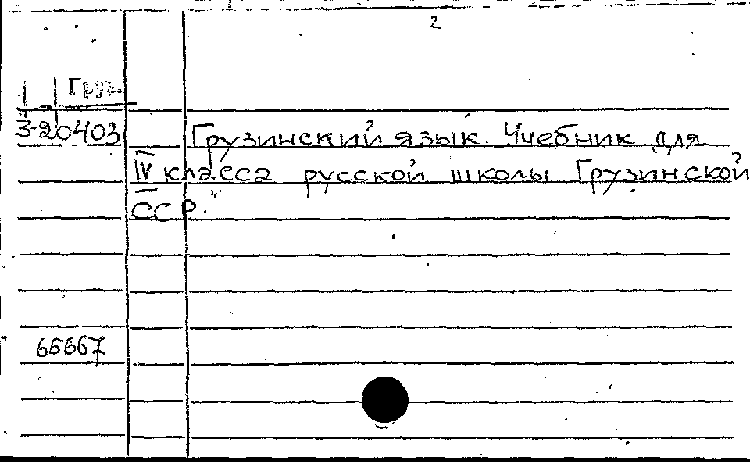 2
Груз.
3-20403
Грузинский язык. Учебник для
IV класса русской школы Грузинской
ССР.
66667